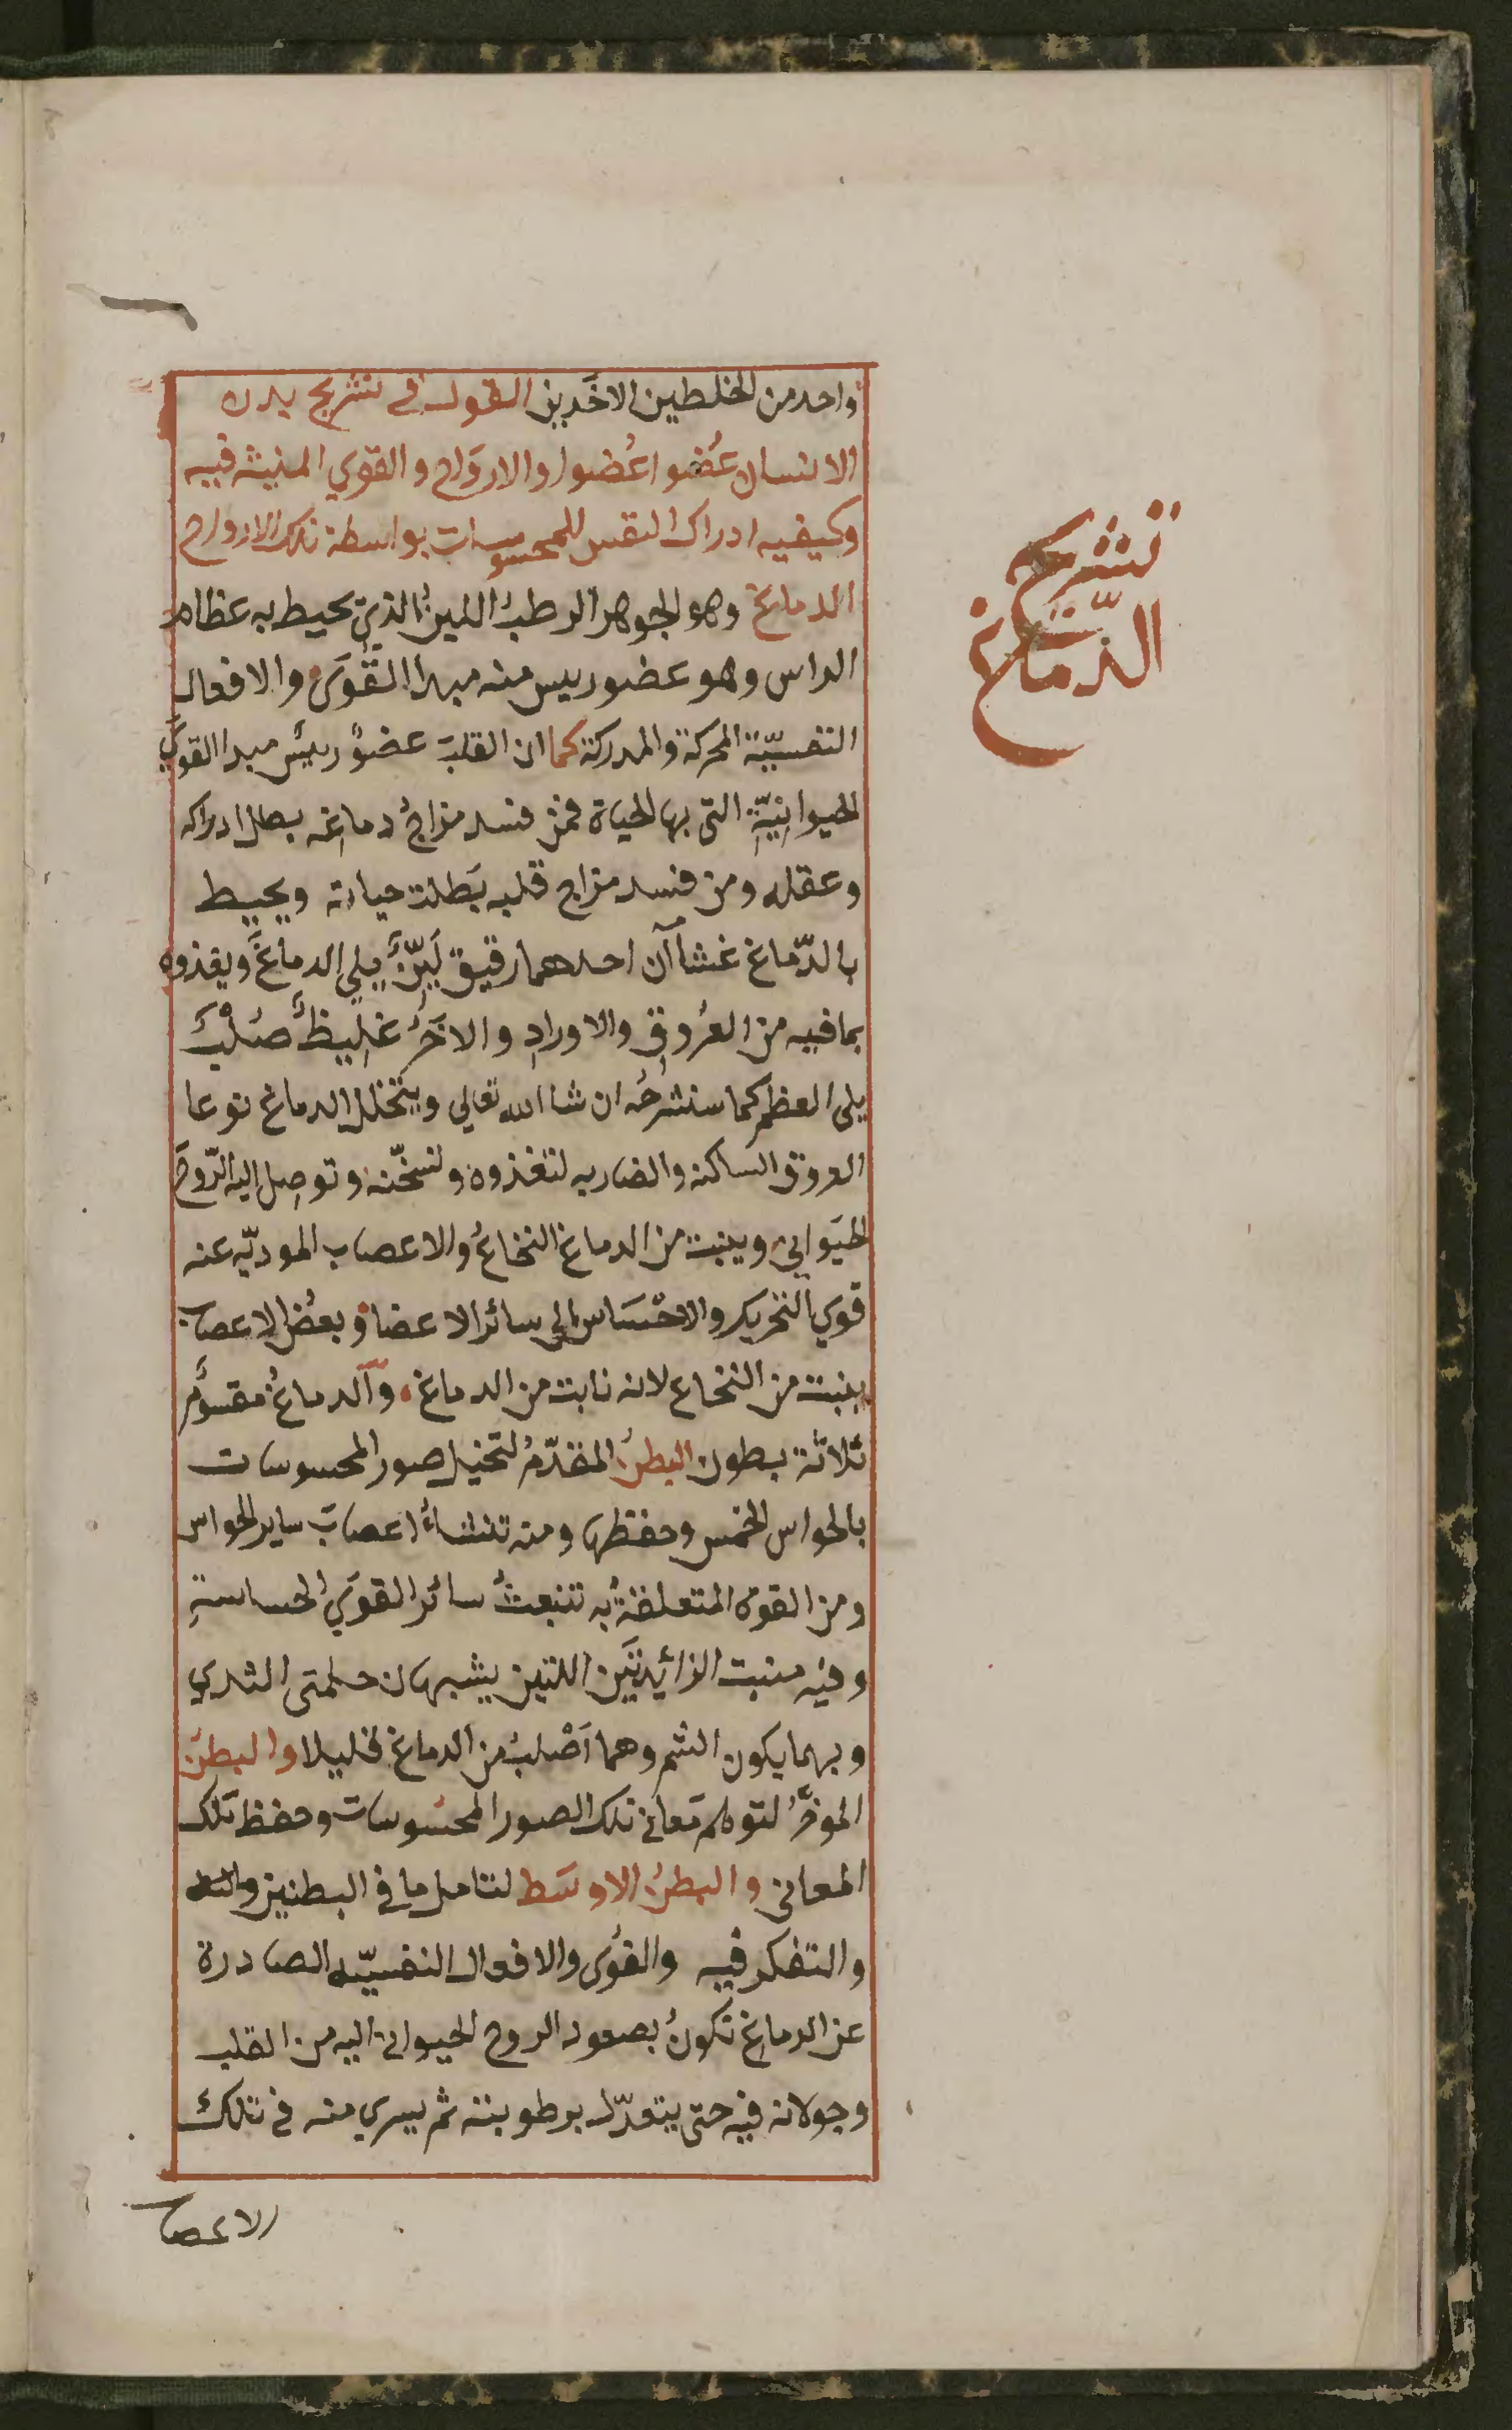 واحد من الخلطين الاخَريين القول في تشريح بدن
الانسان عُضوا عُضوا والارواح والقوي المنبثه فيه
وكيفيه ادراك النفس للمحسوسات بواسطة تلك الارواح
تشريح
الدّماغ
الدماغ وهو الجوهر الرطبُ اللينُ الذي يحيط به عظام
الراس وهو عضو رييس منه مبدا القُوَى والافعال
النفسيّة المحركة والمدركة كما ان القلبَ عضوٌ رييسٌ مبدا القوَي
الحيوانِيّةِ التي بها الحياة فمن فسد مزاجُ دماغِه بطل ادراكه
وعقله ومن فسد مزاج قلبه بَطلت حياته ويحيط
بالدّماغ غشاآن احدهما رقيق لَيِّنٌ يلي الدماغَ ويغذوه
بما فيه من العُروقِ والاورادِ والاخَرُ غليظٌ صُلْبٌ
يلي العظم كما سنشرحُه ان شا الله تعالي ويتخلل الدماغ نوعا
العروق الساكنه والضاربه لتغذوه ولتسخّنه وتوصل اليه الرّوحَ
الحَيَواني وينبت من الدماغ النخاعُ والاعصاب الموديّه عنه
قوي التحريك والاحْسَاس الي سائر الاعضا وبعضُ الاعصاب
ينبت من النخاع لانه نابت من الدماغ وآلدماغُ مقسومٌ
ثلاثة بطون البطنُ المقدّمُ لتخيل صور المحسوسات
بالحواس الخمس وحفظها ومنه تنشاءُ اعصابَ ساير الحواس
ومن القوة المتعلقةُ به تنبعثُ سائر القوَي الحساسةِ
وفيه منبت الزائيدتَين اللتين يشبهان حلمتى الثدي
وبهما يكون الشم وهما اَصْلبُ من الدماغ قليلا والبطنَ
الموخَّرُ لتوهم مَعانِي تلك الصور المحسُوسات وحفظ تلك
المعاني والبطنُ الاوسَط لتامل ما في البطنين
والتفكر فيه والقُوى والافعال النفسيّه الصادرة
عن الدماغ تكونُ بصعود الروح الحيواني اليه من القلب
وجولانه فيه حتى يتعدّل برطوبته ثم يسري منه في تلك
الاعصاب